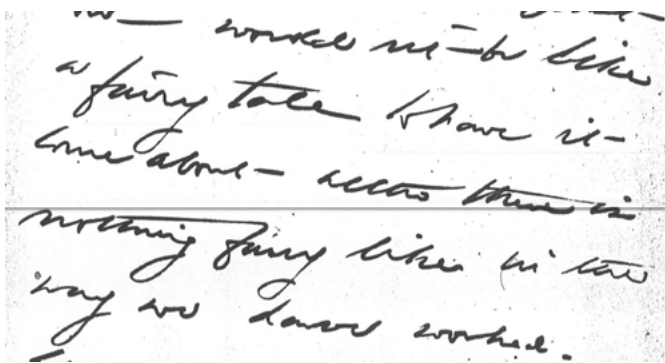 would it be like
a fairy tale to have it
come about — altho there is
nothing fairy like in the
way we have worked.